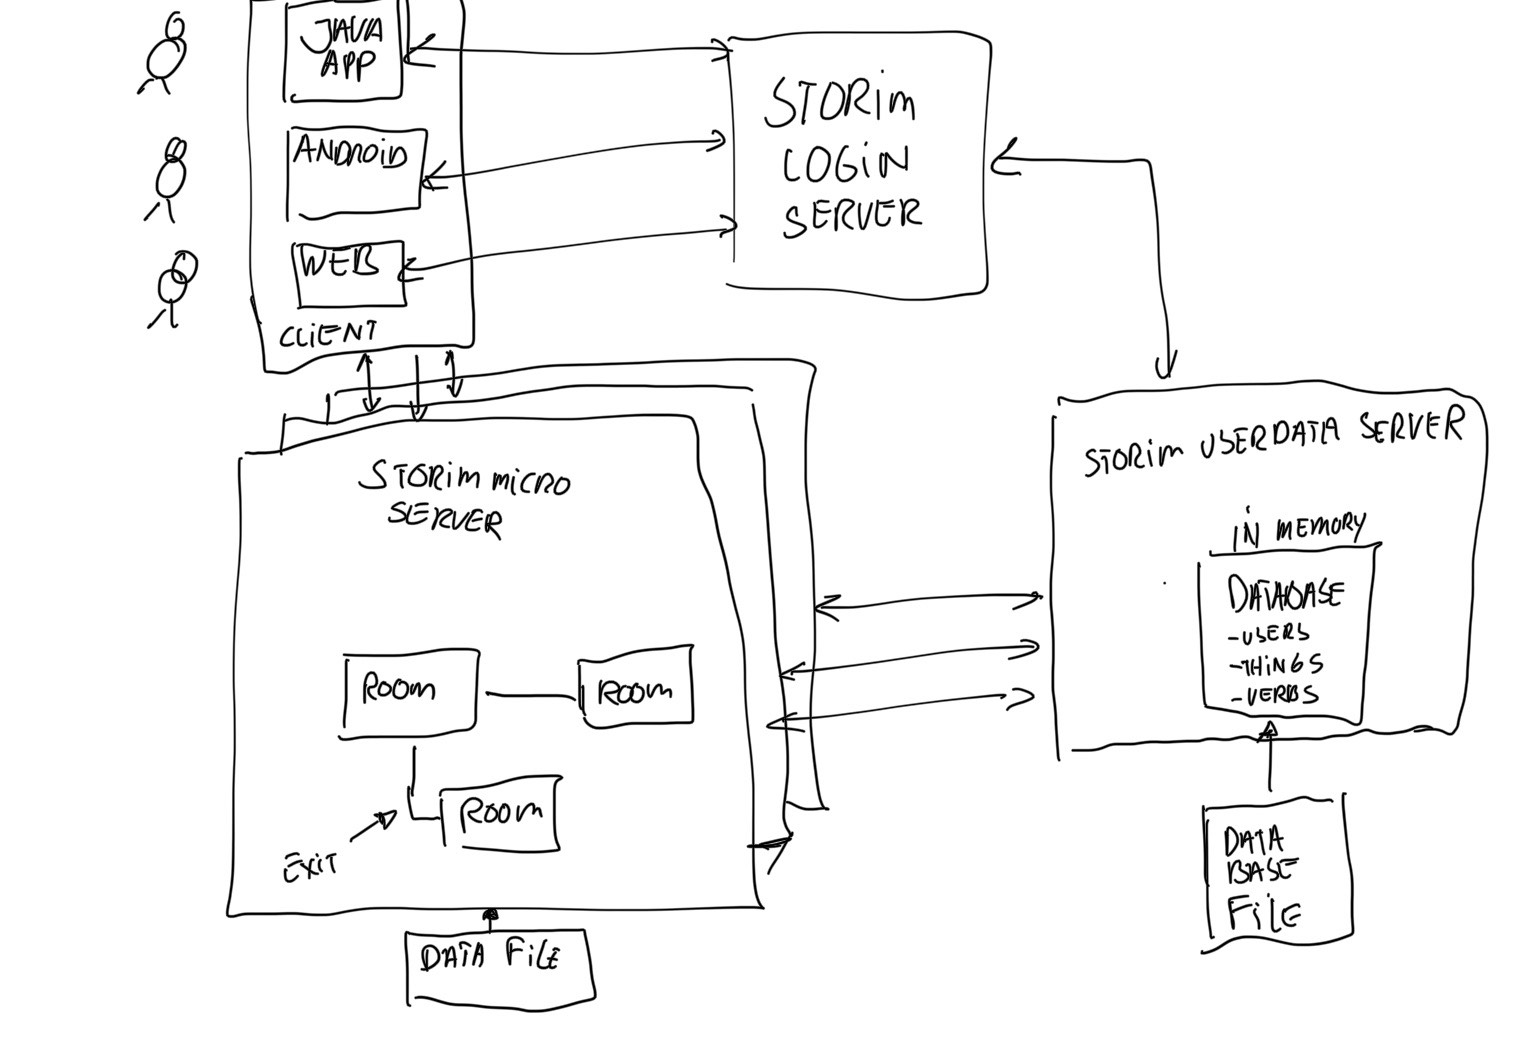 JAVA
APP
ANDROID
WEB
CLIENT
STORIM
LOGIN
SERVER
STORIM MICRO
SERVER
ROOM
ROOM
ROOM
EXIT
DATA FILE
STORIM USERDATA SERVER
IN MEMORY
DATABASE
-USERS
-THINGS
-VERBS
DATA
BASE
FILE